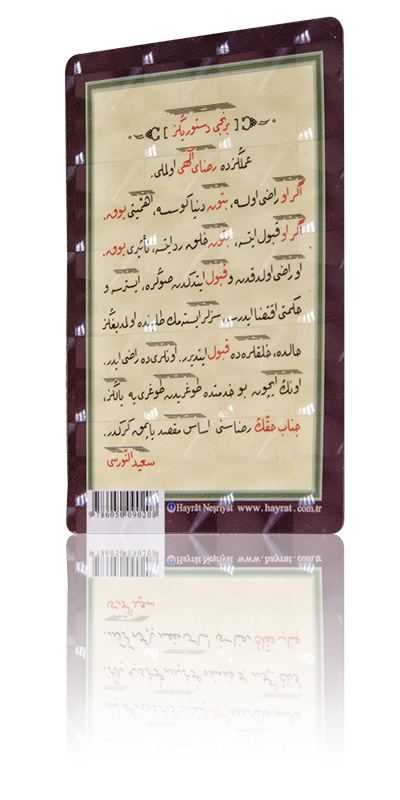 [ برنجی دستوریڭز ]
عملڭزده رضای الٓهی اولملی.
اگر او راضی اولسه، بتون دنیا کوسسه، اهمّیتی یوق.
اگر او قبول ایتسه، بتون خلق ردّ ایتسه، تأثیری یوق.
او راضی اولدقدن و قبول ایتدکدن صوڭره، ایسترسه و
حکمتی اقتضا ایدرسه، سزلر ایسته مك طلبنده اولمدیغڭز
حالده، خلقلره ده قبول ایتدیرر. اونلری ده راضی ایدر.
اونڭ ایچون بو خدمتده طوغریدن طوغری یه یالڭز،
جناب حقّڭ رضاسنی اساس مقصد یاپمق کرکدر.
سعید النّورسی
9 786050 090208
Hayrât Neşriyat www.hayrat.com.tr